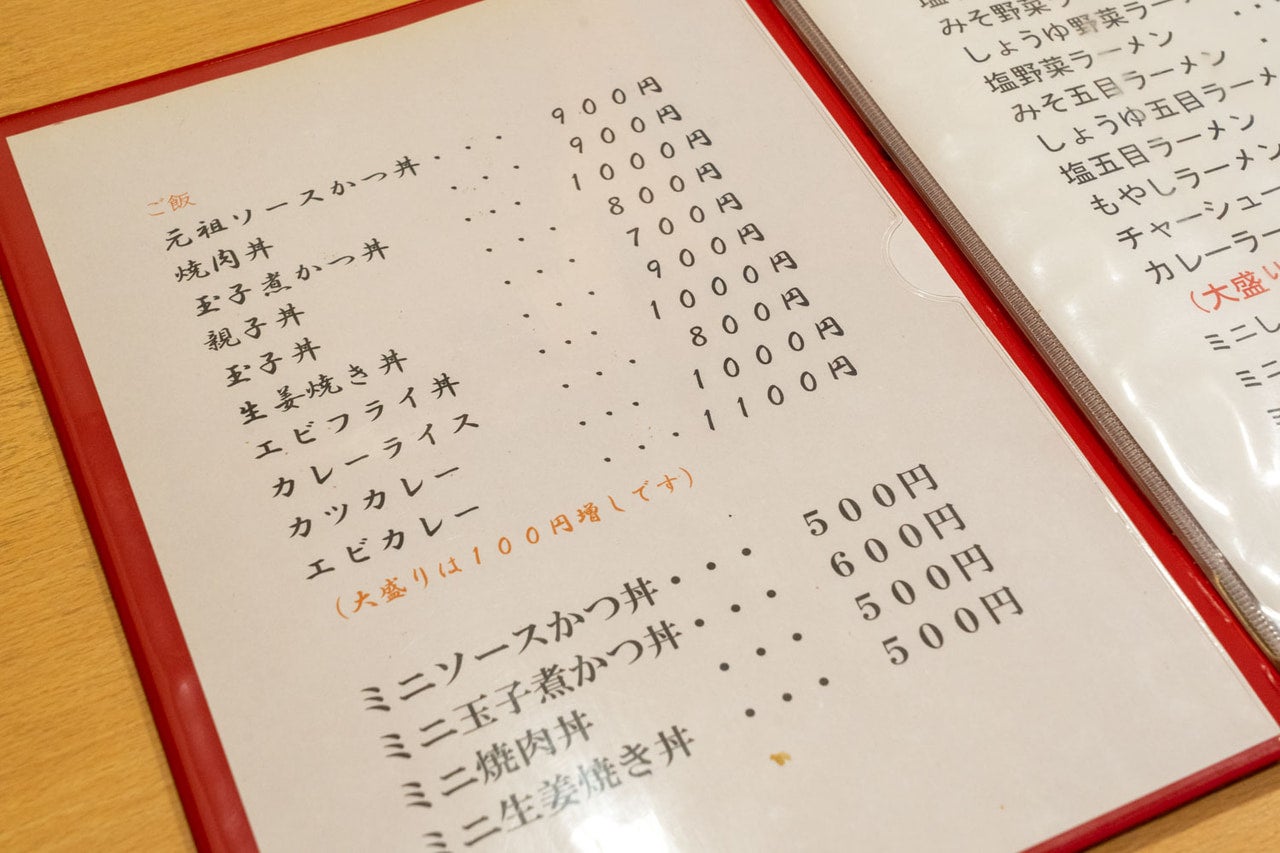 ご飯
元祖ソースかつ丼・・・ 900円
焼肉丼 ・・・ 900円
玉子煮かつ丼 ・・・ 1000円
親子丼 ・・・ 800円
玉子丼 ・・・ 700円
生姜焼き丼 ・・・ 900円
エビフライ丼 ・・・ 1000円
カレーライス ・・・ 800円
カツカレー ・・・ 1000円
エビカレー ・・・ 1100円
(大盛りは100円増しです)
ミニソースかつ丼・・・ 500円
ミニ玉子煮かつ丼・・・ 600円
ミニ焼肉丼 ・・・ 500円
ミニ生姜焼き丼 ・・・ 500円
みそ野菜ラ
しょうゆ野菜ラーメン
塩野菜ラーメン
みそ五目ラーメン
しょうゆ五目ラーメン
塩五目ラーメン
もやしラーメン
チャーシュー
カレーラー
(大盛り
ミニし
ミニ